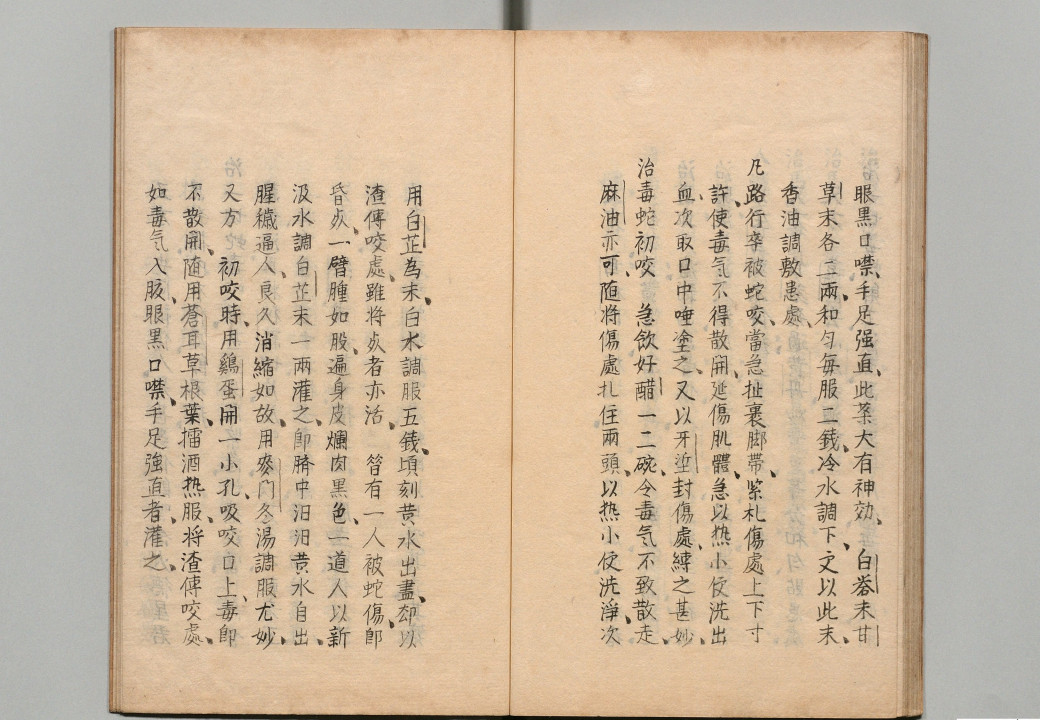 眼黒口噤、手足强直、此薬大有神効、 白礬末甘
草末各二兩、和匀毎服二錢、冷水調下、又以此末、
香油調敷患處、
凡路行卒被蛇咬、當急扯裹脚帶、紧札傷處上下寸
許、使毒気不得散開、延傷肌體、急以热小便洗出
血、次取口中唾塗之、又以牙垽封傷處、縛之甚妙、
治毒蛇初咬 急飲好醋一二碗、令毒気不致散走、
麻油亦可、随將傷處扎住兩頭、以热小便洗淨、次
用白芷為末、白水調服五錢、頃刻黄水出盡、却以
渣傅咬處、雖將㱙者亦活、 昝有一人被蛇傷即
昏㱙、一臂腫如股、遍身皮爛肉黒色、一道人以新
汲水調白芷末一兩灌之、即臍中汨汨黄水自出、
腥穢逼人、良久消縮如故、用麥門冬湯調服尤妙、
又方 初咬時、用鷄蛋開一小孔、吸咬口上、毒即
不散開、随用蒼耳草根葉、擂酒热服、将渣傅咬處、
如毒気入胲、眼黒口噤、手足強直者、灌之、